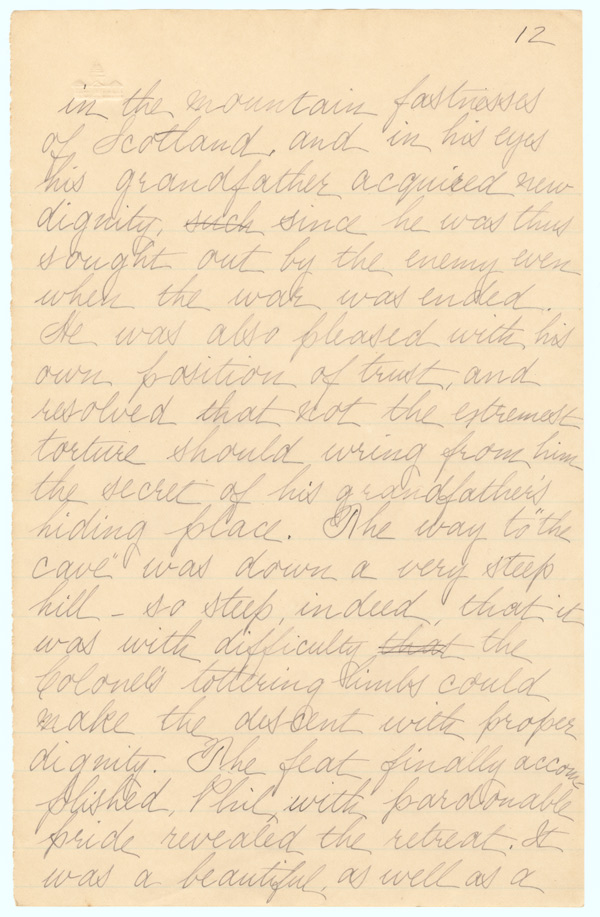 12
in the mountain fastnesses
of Scotland, and in his eyes
his grandfather acquired new
dignity, such since he was thus
sought out by the enemy even
when the war was ended.
He was also pleased with his
own position of trust, and
resolved that not the extremest
torture should wring from him
the secret of his grandfather's
hiding place. The way to "the
cave" was down a very steep
hill - so steep, indeed, that it
was with difficulty that the
Colonel's tottering limbs could
make the descent with proper
dignity. The feat finally accom-
plished, Phil, with pardonable
pride revealed the retreat. It
was a beautiful, as well as a